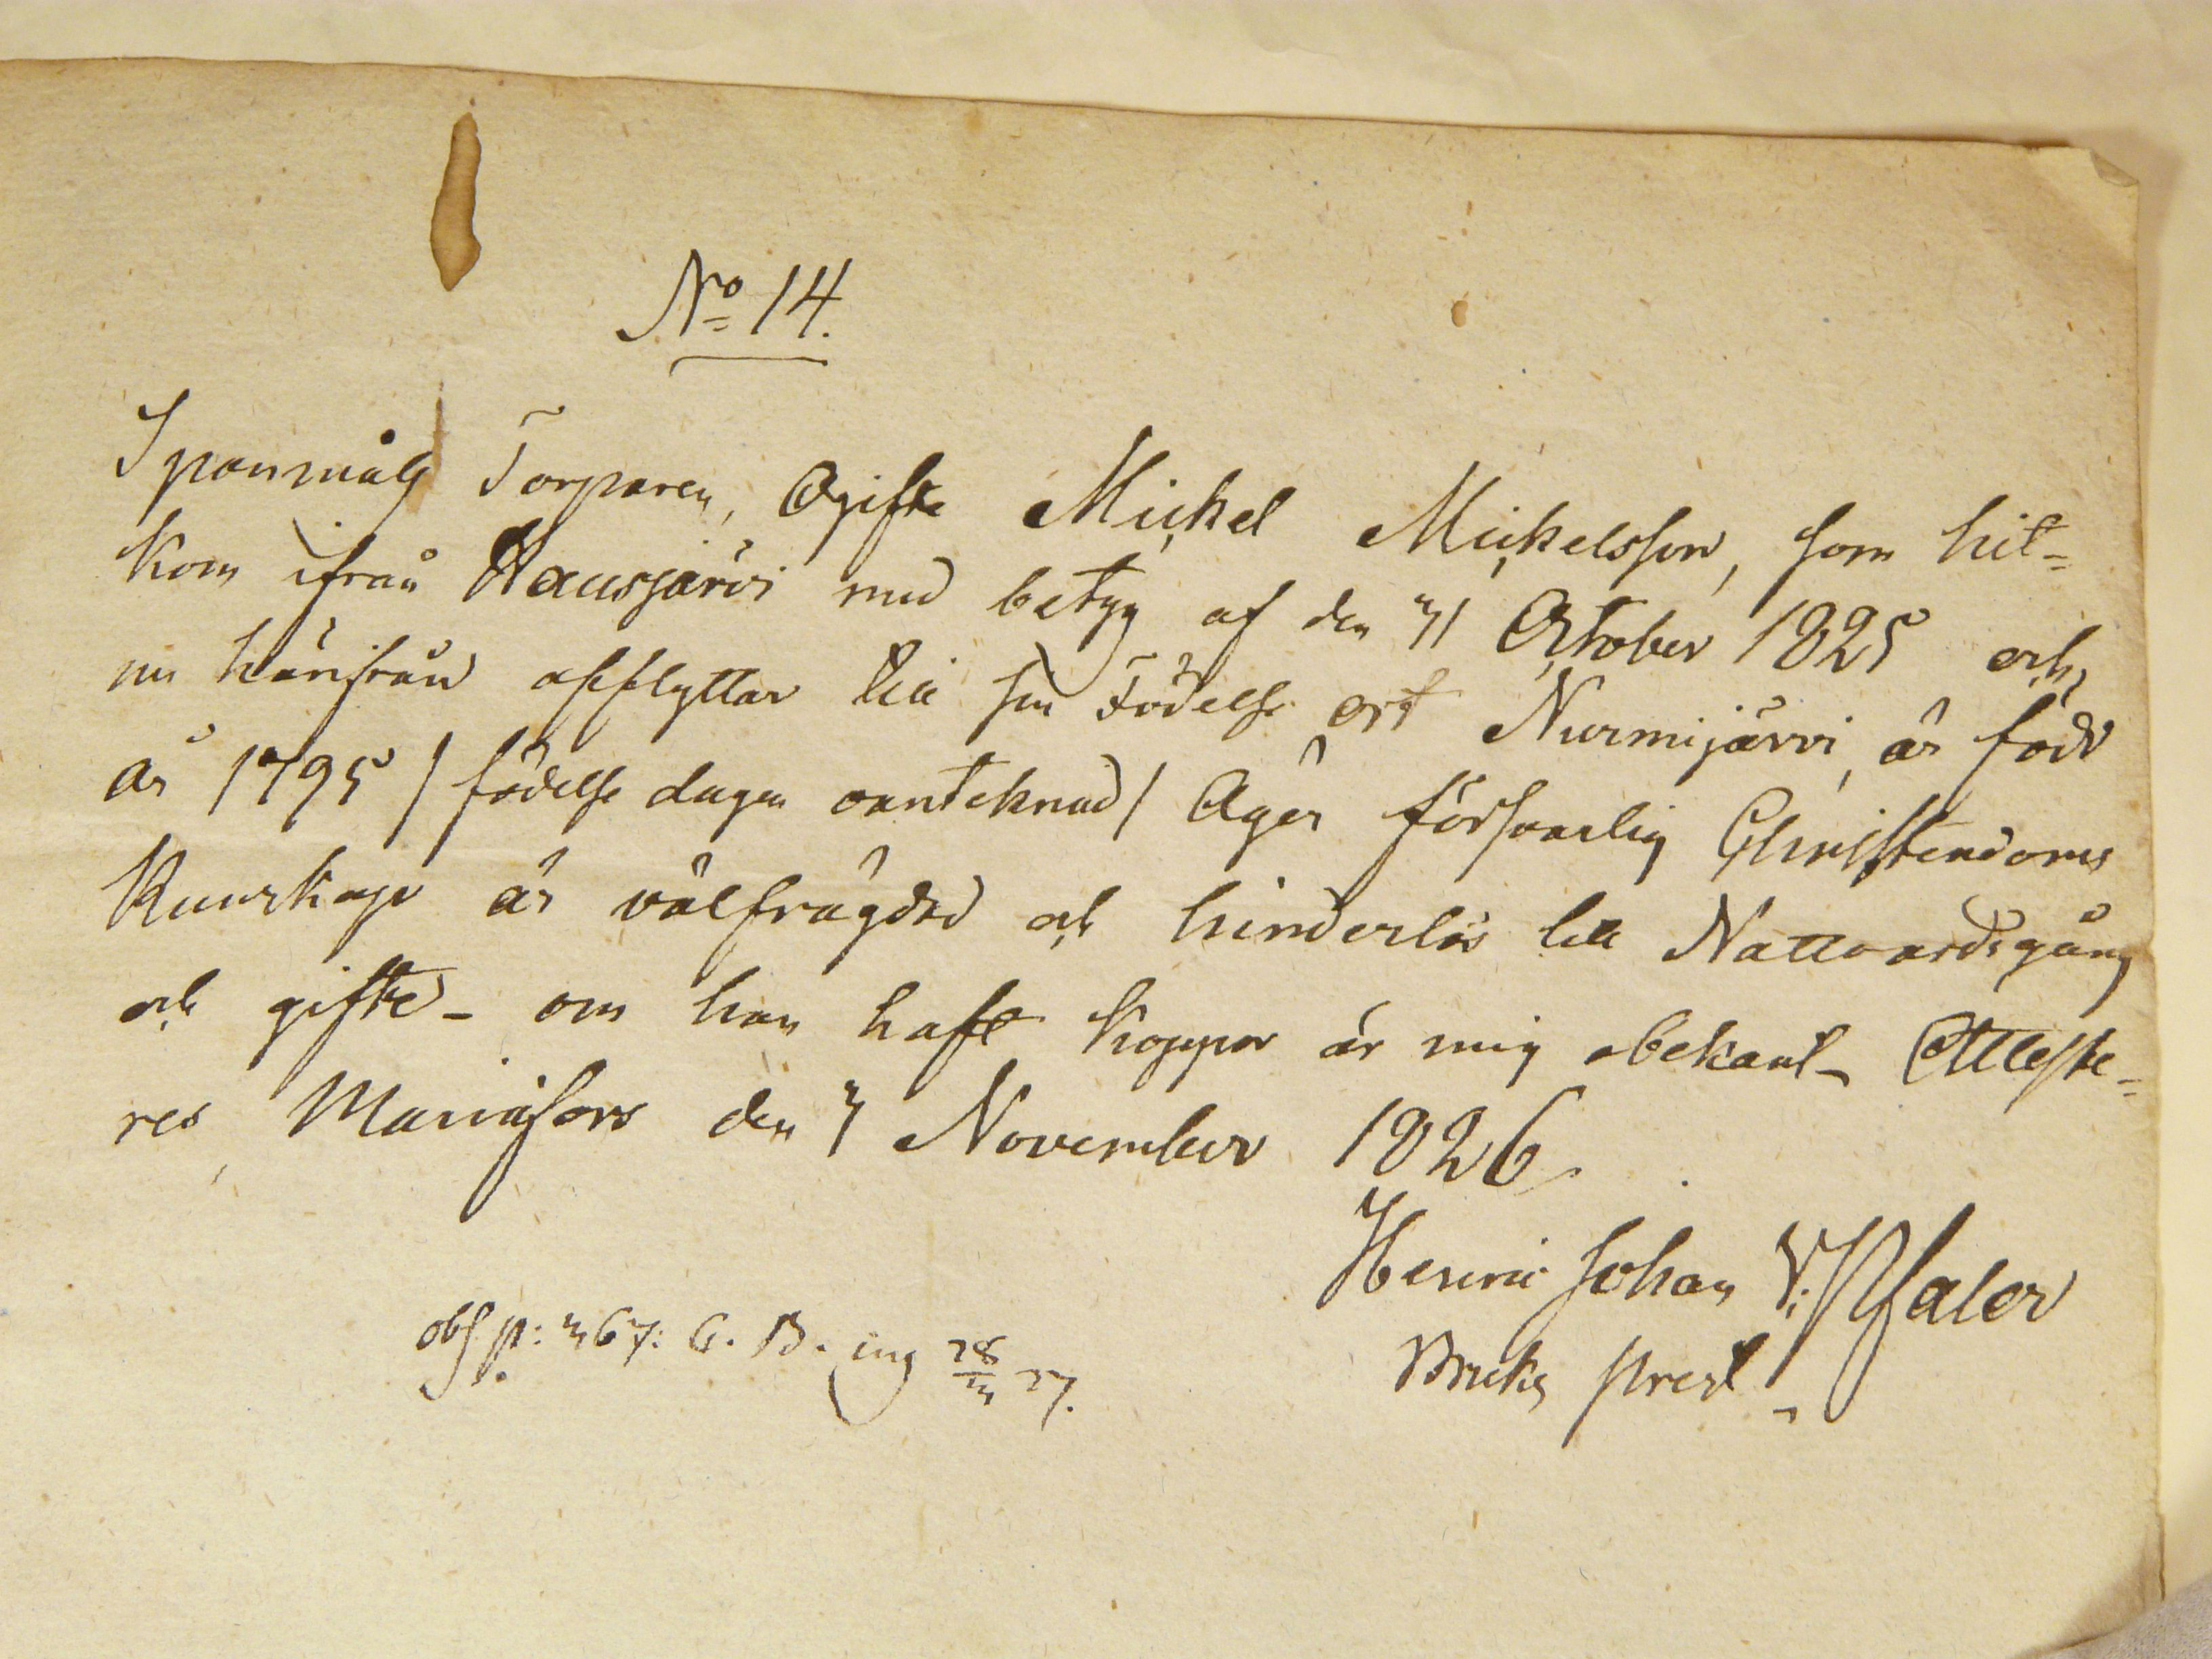 No 14.
Spanmåls Torparen, Ogifte Mickel Mickelsson, som hit-
kom ifrån Hausjärvi med betyg af den 31 October 1825 och
nu härifrån afflyttar till sin Födelse ort Nurmijärvi, är född
år 1795 / födelse dagen oanteknad / Äger försvarlig Christendoms
Kunskap är välfrägdad och hinderlös till Nattvardsgång
och gifte - om han haft koppor är mig obekant - Atteste-
res, Mariæfors den 3 November 1826.
Henric Johan V: Pfaler
Bruks Prest
obs p: 367: C. B. ing 28/3 27.